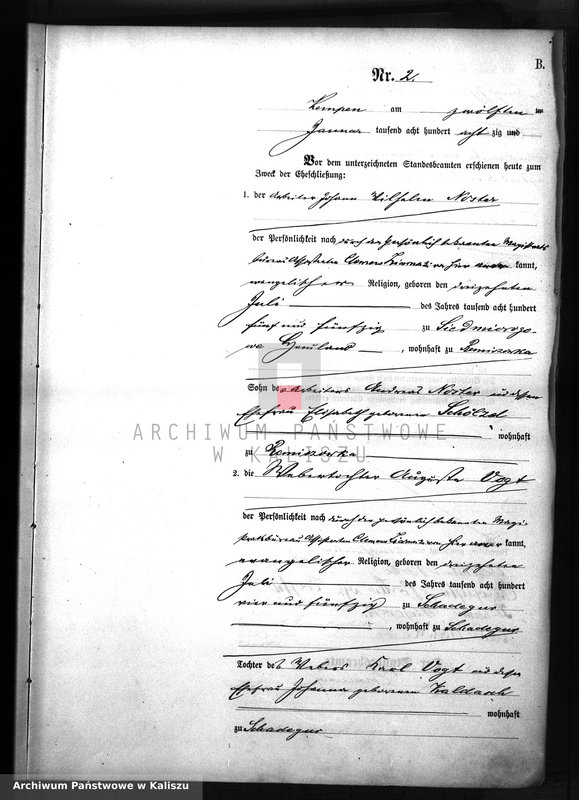 B.
Nr. 2.
Kempen am zwölften
Januar tausend acht hundert acht zig und
Vor dem unterzeichneten Standesbeamten erschienen heute zum
Zweck der Eheschließung:
1. der Arbeiter Johann Wilhelm Noster
der Persönlichkeit nach durch den persönlich bekannten Magistrats
büreau Assistenten Clemens von hier kannt,
evangelischer Religion, geboren den dreizehnten
Juli des Jahres tausend acht hundert
fünf und fünfzig zu Siedmiorogo-
wo Hauland, wohnhaft zu
Sohn des Arbeiters Andreas Noster und dessen
Ehefrau Elisabeth geborenen Schölzel
wohnhaft
zu
2. die Webertochter Auguste Vogt
der Persönlichkeit nach durch den persönlich bekannten Magi-
stratsbüreau Assistenten Clemens von hier kannt,
evangelischer Religion, geboren den dreizehnten
Juli des Jahres tausend acht hundert
vier und fünfzig zu Schadegur
, wohnhaft zu Schadegur
Tochter des Webers Karl Vogt und dessen
Ehefrau Johanna geborenen Waldasch
wohnhaft
zu Schadegur
ARCHIWUM PAŃSTWOWE
W KALISZU
Archiwum Państwowe w Kaliszu